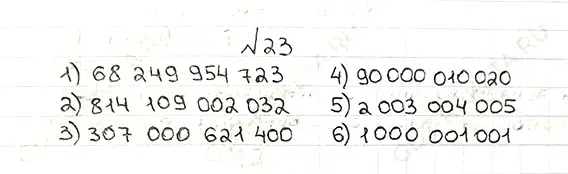 №23
1) 68 249 954 723
2) 814 109 002 032
3) 307 000 621 400
4) 90 000 010 020
5) 2 003 004 005
6) 1 000 001 001